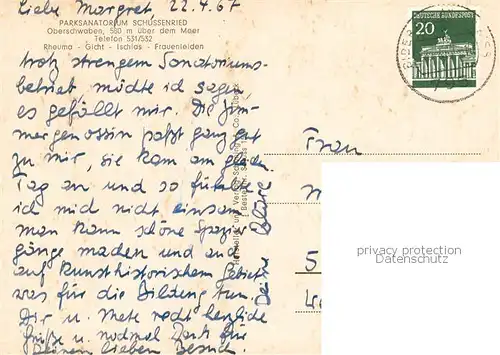 Liebe Margret 22.4.67
PARKSANATORIUM SCHUSSENRIED
Oberschwaben, 580 m über dem Meer
Telefon 531/532
Rheuma - Gicht - Ischias - Frauenleiden
trotz strengem Sanatoriums-
betrieb möchte ich sagen
es gefällt mir. Die Zim-
mergenossin paßt ganz gut
zu mir, sie kam am gleichen
Tag an und so fühlte
ich mich nicht einsam
man kann schöne Spazier
gänge machen und auch
auf kunsthistorischem Gebiet
was für die Bildung tun.
Dir u. Mete recht herzliche
Grüße u. nochmal Dank für
Deinen lieben Besuch.
Deine Kläre
DEUTSCHE BUNDESPOST
20
Frau
5
privacy protection
Datenschutz